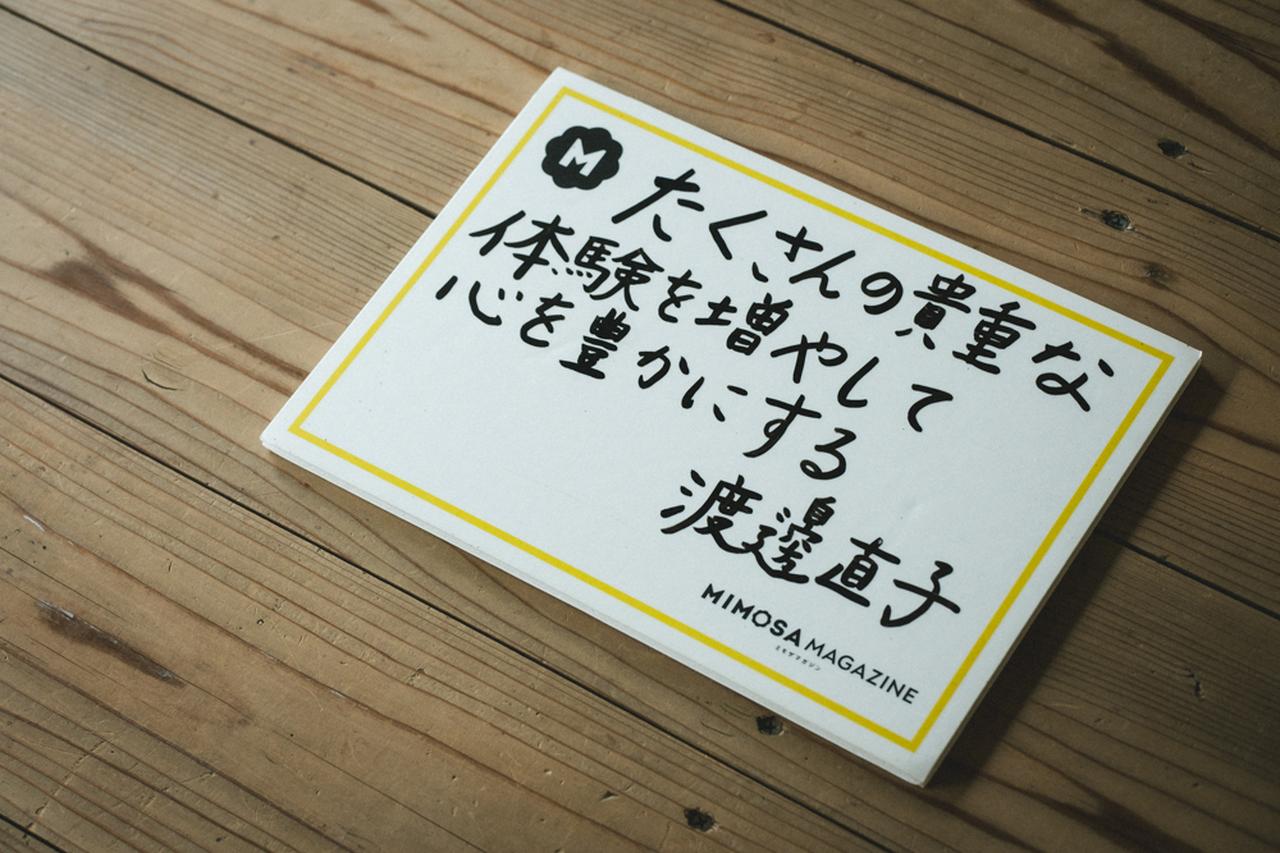 M
たくさんの貴重な
体験を増やして
心を豊かにする
渡邊直子
MIMOSA MAGAZINE
ミモザマガジン